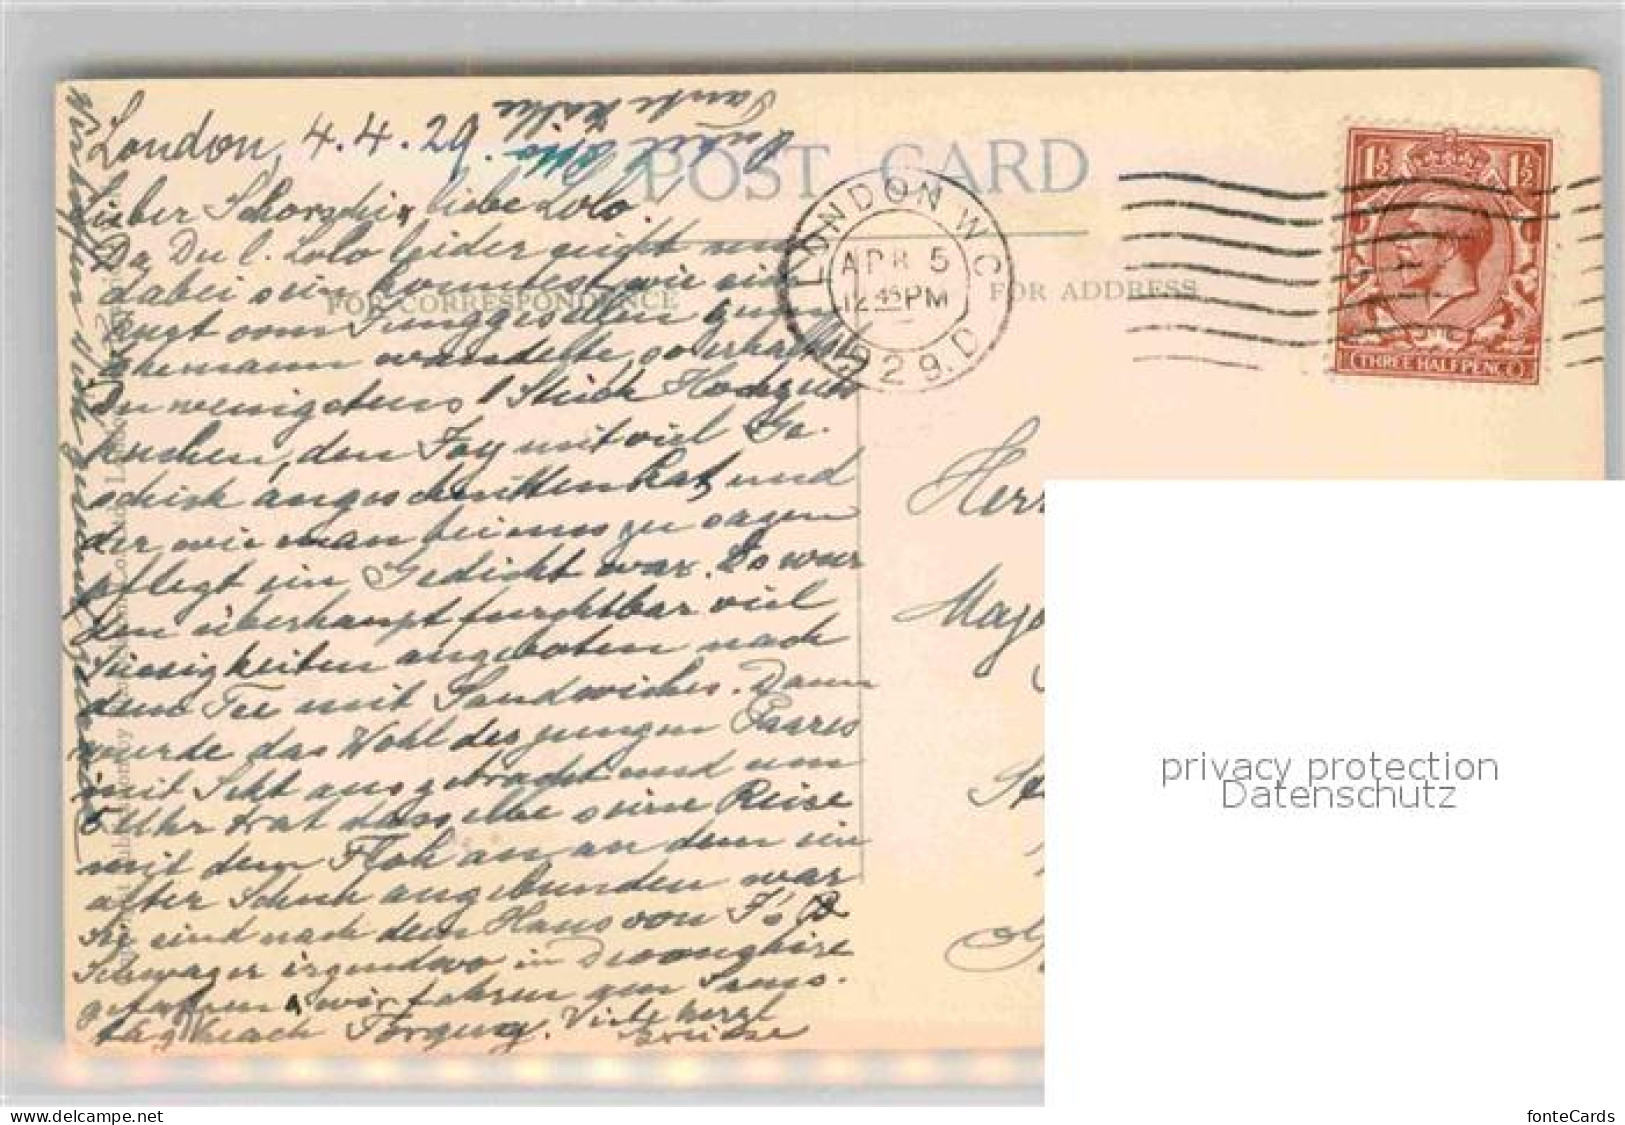 London, 4.4.29.
Onkel Otto
Tante Käthe
Lieber Schorschi, liebe Lolo
Da Du l. Lolo leider nicht mit
dabei sein konntest wie sich
vom Junggesellen zum
Ehemann wandelte, so erhältst
Du wenigstens 1 Stück Hochzeits
kuchen, den Fay mit viel Ge-
schick angeschnitten hat, und
der, wie man bei uns zu sagen
pflegt ein Gedicht war. Es wur
den überhaupt furchtbar viel
Süssigkeiten angeboten nach
dem Tee mit Sandwiches. Dann
wurde das Wohl des jungen Paares
mit Sekt ausgebracht und um
5 Uhr trat dasselbe seine Reise
mit dem an an dem ein
alter Schuh angebunden war
Sie sind nach dem Haus von F's
Schwager irgendwo in
gefahren, wir fahren am Sams-
tag nach Torquay. Viele herzl
Grüsse
POST CARD
FOR CORRESPONDENCE
FOR ADDRESS
LONDON W.C.
APR 5
12 45 PM
1929. D
1½ 1½
THREE HALFPENCE
Herr
Majo
privacy protection
Datenschutz
fonteCards